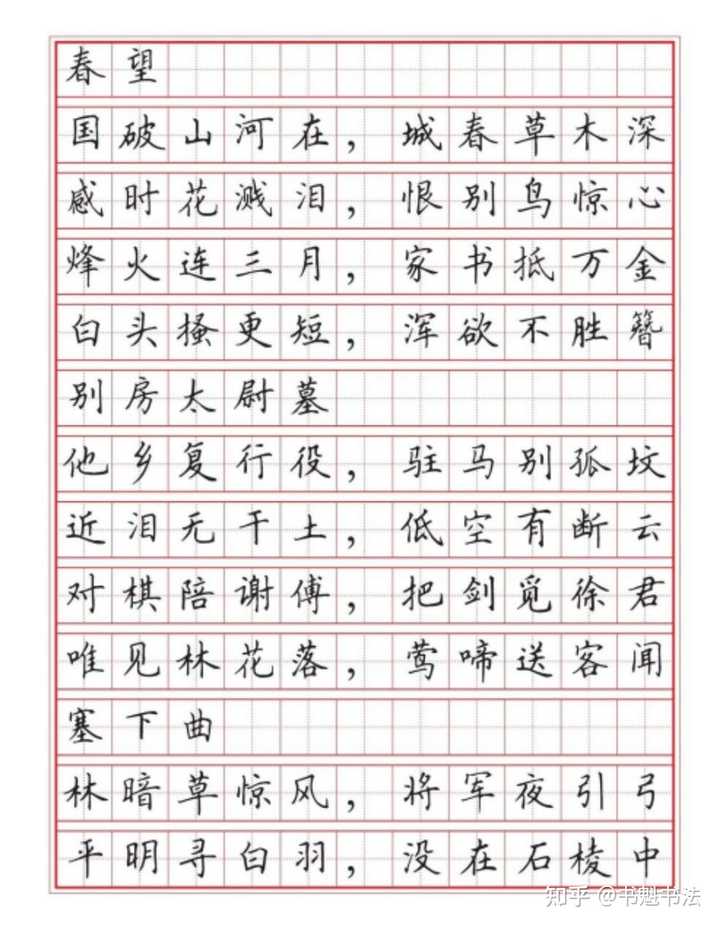 春望
国破山河在，城春草木深
感时花溅泪，恨别鸟惊心
烽火连三月，家书抵万金
白头搔更短，浑欲不胜簪
别房太尉墓
他乡复行役，驻马别孤坟
近泪无干土，低空有断云
对棋陪谢傅，把剑觅徐君
唯见林花落，莺啼送客闻
塞下曲
林暗草惊风，将军夜引弓
平明寻白羽，没在石棱中
知乎 @书魁书法